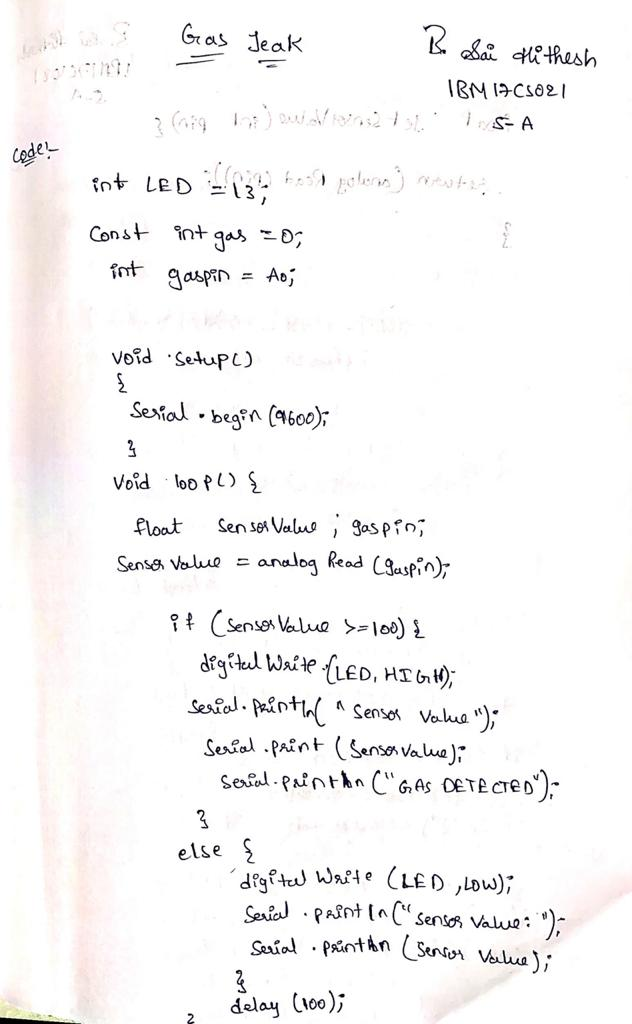 Gas Leak
B. Sai Hithesh
1BM17CS021
5-A
Code:-
int LED = 13;
Const int gas = 0;
int gaspin = A0;
void setup()
{
Serial.begin(9600);
}
Void loop() {
float sensorValue ; gaspin;
Sensor Value = analog Read (gaspin);
if (SensorValue >=100) {
digital Write.(LED, HIGH);
Serial.println("Sensor Value");
Serial.print (SensorValue);
Serial.println ("GAS DETECTED");
}
else {
digital Write (LED ,LOW);
Serial.println("Sensor Value: ");
Serial.println (Sensor Value);
}
delay (100);
}